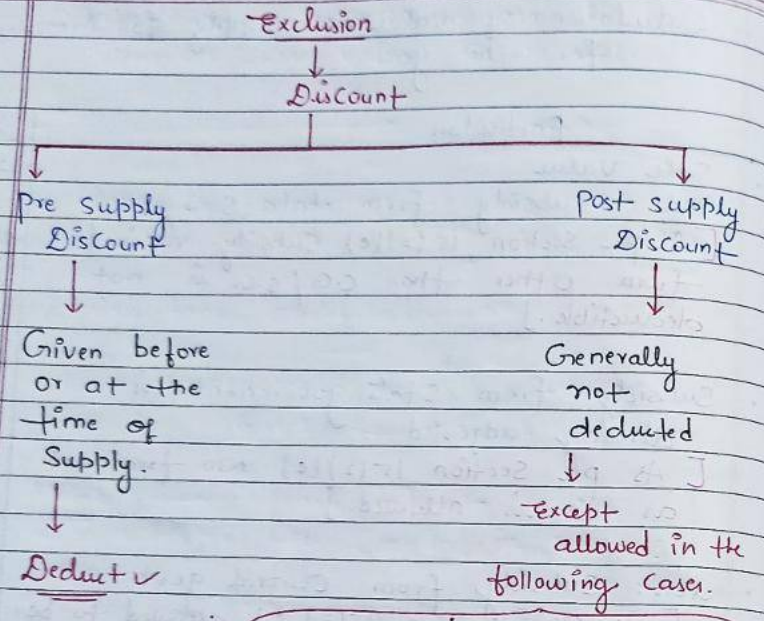 Exclusion
Discount
Pre Supply
Discount
Given before
or at the
time of
Supply.
Deduct ✓
Post supply
Discount
Generally
not
deducted
Except
allowed in the
following cases.